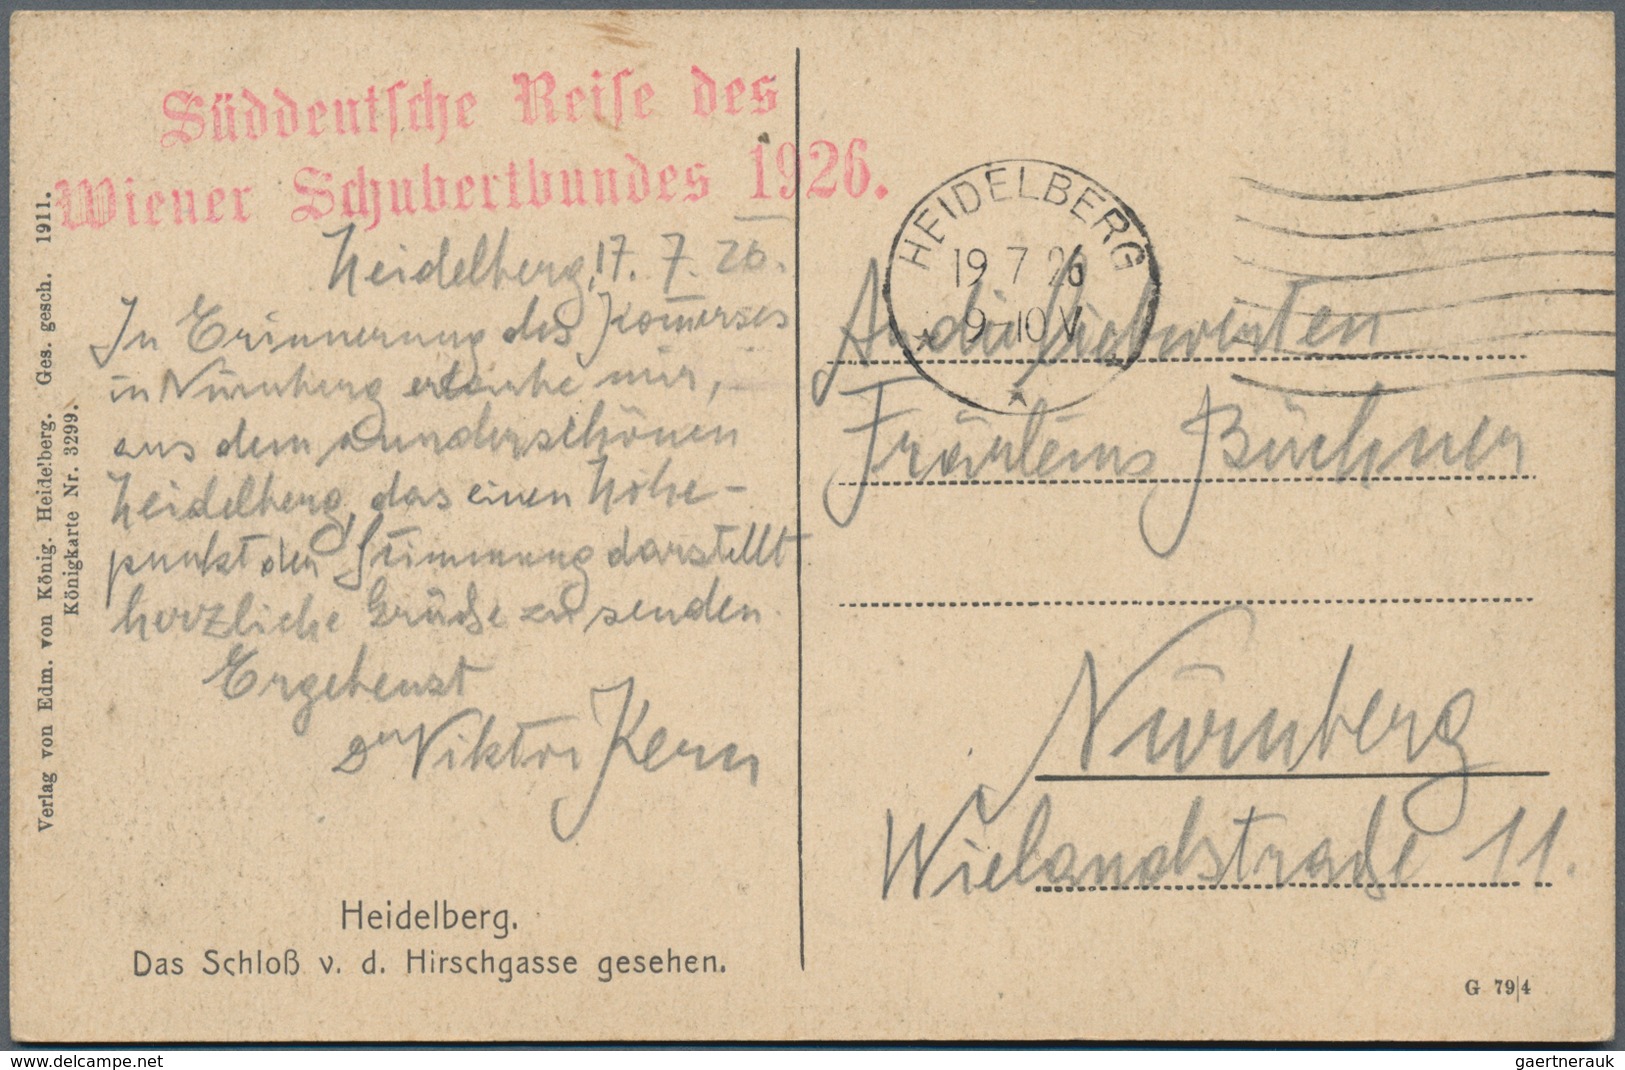 Süddeutsche Reise des
Wiener Schubertbundes 1926.
Heidelberg, 17. 7. 26.
In Erinnerung des Komerses
in Nürnberg erlaube mir,
aus dem wunderschönen
Heidelberg, das einen Höhe-
punkt der Stimmung darstellt
herzliche Grüße zu senden.
Ergebenst
Dr Viktor Kern
Heidelberg.
Das Schloß v. d. Hirschgasse gesehen.
Verlag von Edm. von König. Heidelberg. Ges. gesch. 1911.
Königkarte Nr. 3299.
HEIDELBERG
19 7 26
9-10 V
An die liebwerten
Fräuleins Büchner
Nürnberg
Wielandstraße 11.
G 79|4
www.delcampe.net
gaertnerauk